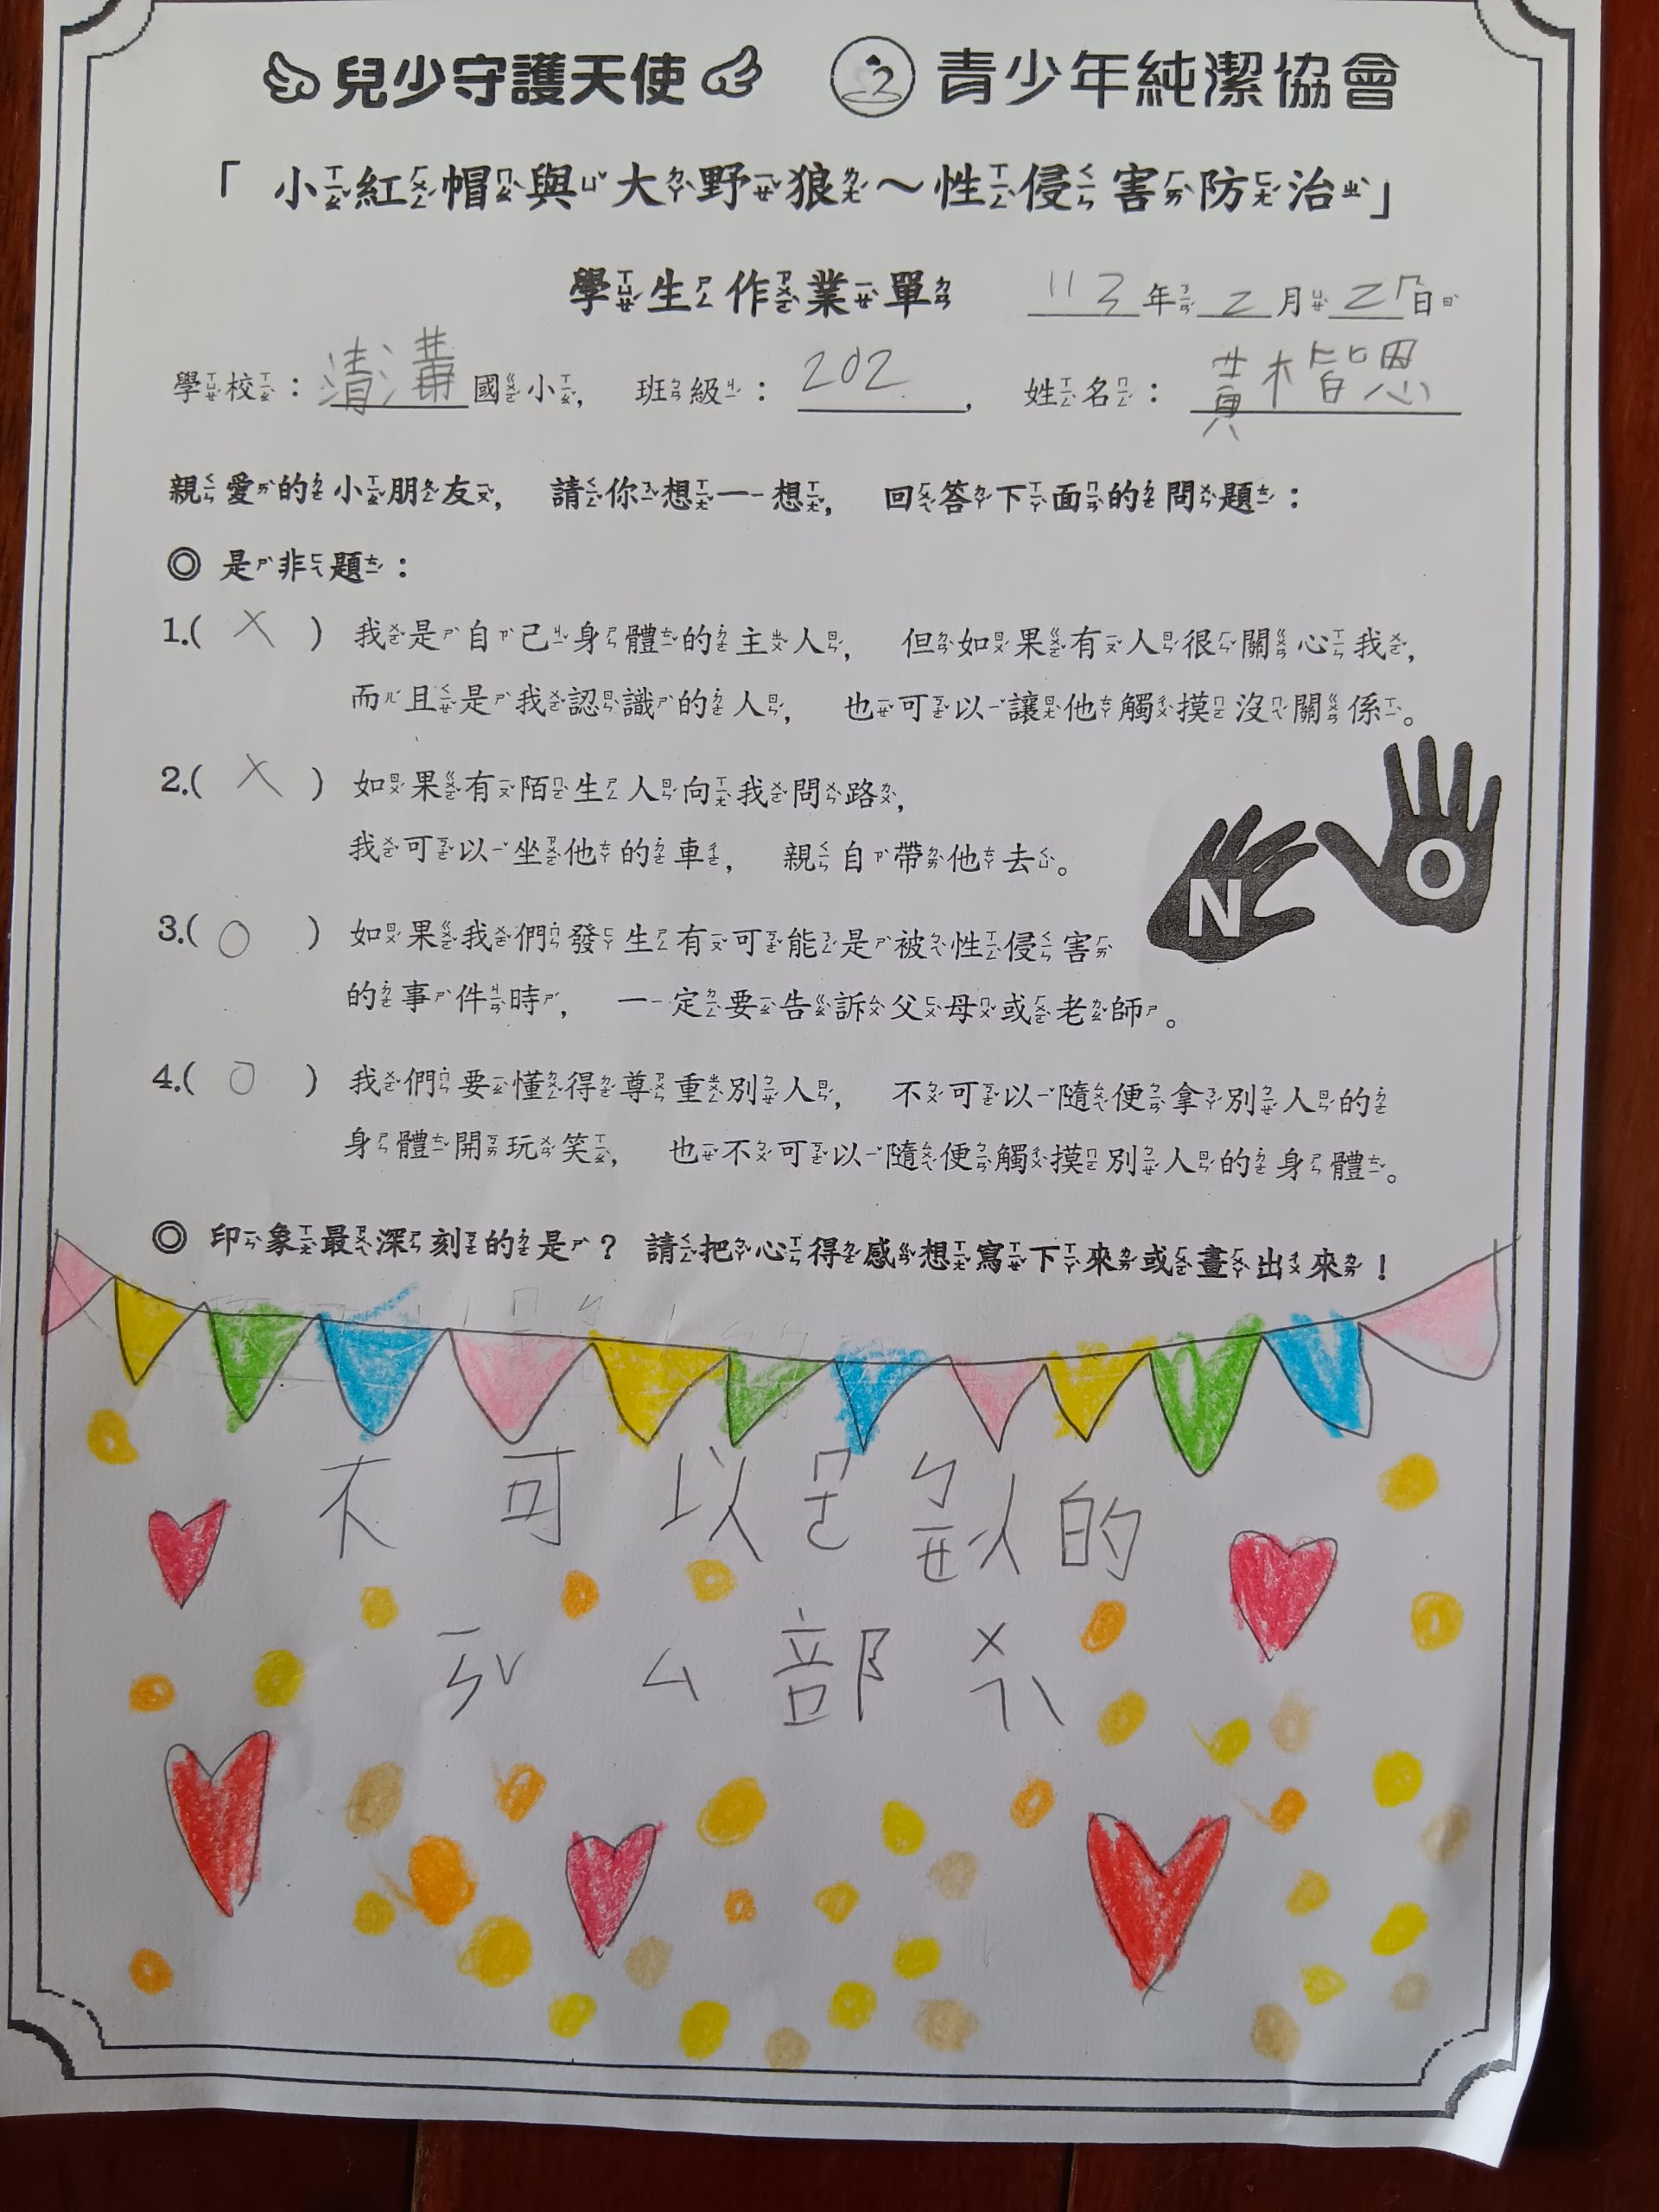 兒少守護天使 青少年純潔協會
「小紅帽與大野狼～性侵害防治」
學生作業單 113年2月27日
學校：清溝國小， 班級：202， 姓名：黃楷恩
親愛的小朋友， 請你想一想， 回答下面的問題：
◎ 是非題：
1.( X ) 我是自己身體的主人， 但如果有人很關心我，
而且是我認識的人， 也可以讓他觸摸沒關係。
2.( X ) 如果有陌生人向我問路，
我可以坐他的車， 親自帶他去。
NO
3.( O ) 如果我們發生有可能是被性侵害
的事件時， 一定要告訴父母或老師。
4.( O ) 我們要懂得尊重別人， 不可以隨便拿別人的
身體開玩笑， 也不可以隨便觸摸別人的身體。
◎ 印象最深刻的是？ 請把心得感想寫下來或畫出來！
不可以ㄇㄛㄅㄧㄝ人的
ㄧㄣˇㄙ部ㄨㄟˋ